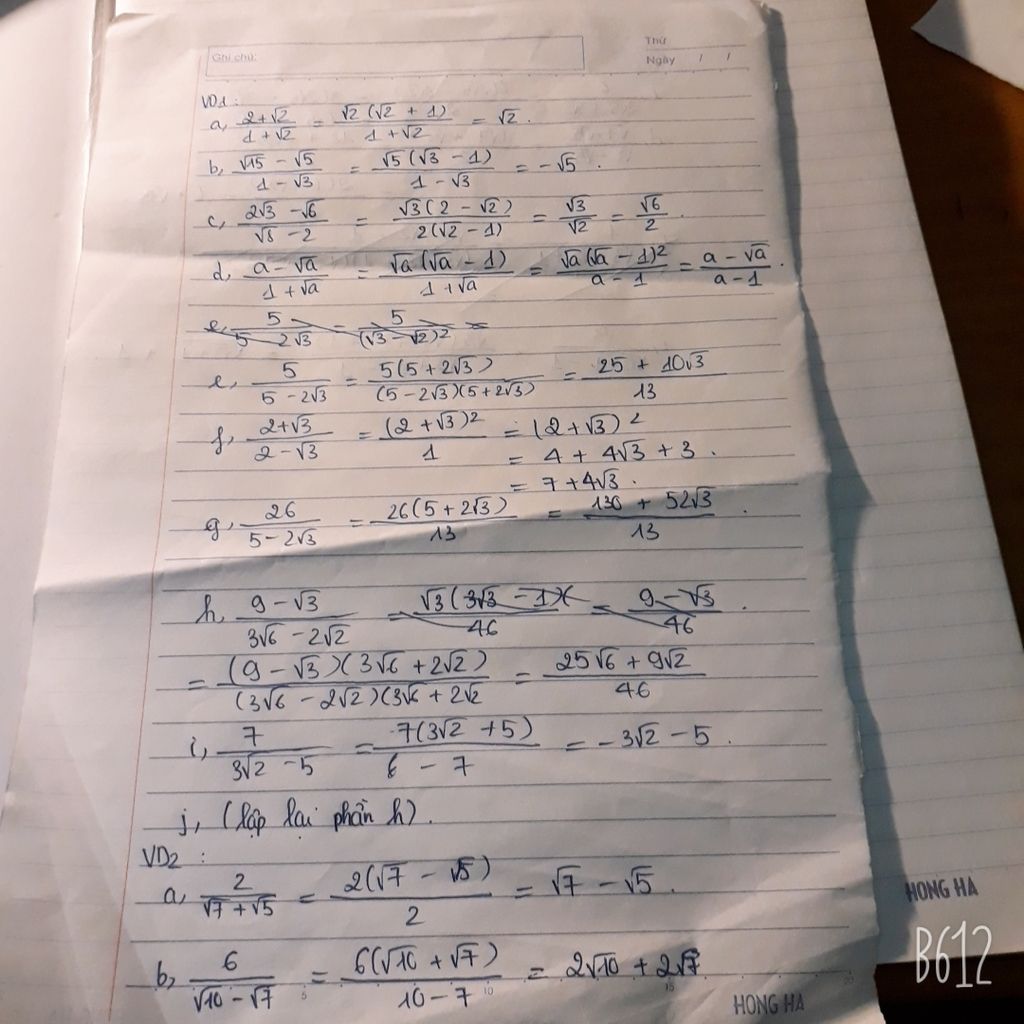 Ghi chú:
Thứ
Ngày / /
VD1 :
a, \frac{2+√2}{1+√2} = \frac{√2(√2 + 1)}{1+√2} = √2.
b, \frac{√15 - √5}{1 - √3} = \frac{√5(√3 - 1)}{1 - √3} = -√5.
c, \frac{2√3 - √6}{√8 - 2} = \frac{√3(2 - √2)}{2(√2 - 1)} = \frac{√3}{√2} = \frac{√6}{2}.
d, \frac{a - √a}{1 + √a} = \frac{√a(√a - 1)}{1 + √a} = \frac{√a(√a - 1)^2}{a - 1} = \frac{a - √a}{a - 1}.
e, \frac{5}{5 - 2√3} = \frac{5}{(√3 - √2)^2} =
e, \frac{5}{5 - 2√3} = \frac{5(5 + 2√3)}{(5 - 2√3)(5 + 2√3)} = \frac{25 + 10√3}{13}
f, \frac{2+√3}{2 - √3} = \frac{(2 + √3)^2}{1} = (2 + √3)^2
= 4 + 4√3 + 3.
= 7 + 4√3.
g, \frac{26}{5 - 2√3} = \frac{26(5 + 2√3)}{13} = \frac{130 + 52√3}{13}.
h, \frac{9 - √3}{3√6 - 2√2} = \frac{√3(3√3 - 1)(}{46} = \frac{9 - √3}{46}.
= \frac{(9 - √3)(3√6 + 2√2)}{(3√6 - 2√2)(3√6 + 2√2} = \frac{25√6 + 9√2}{46}
i, \frac{7}{3√2 - 5} = \frac{7(3√2 + 5)}{6 - 7} = -3√2 - 5.
j, (lặp lại phần h).
VD2 :
a, \frac{2}{√7 + √5} = \frac{2(√7 - √5)}{2} = √7 - √5.
b, \frac{6}{√10 - √7} = \frac{6(√10 + √7)}{10 - 7} = 2√10 + 2√7.
5 10 15 20
HONG HA
HONG HA
B612